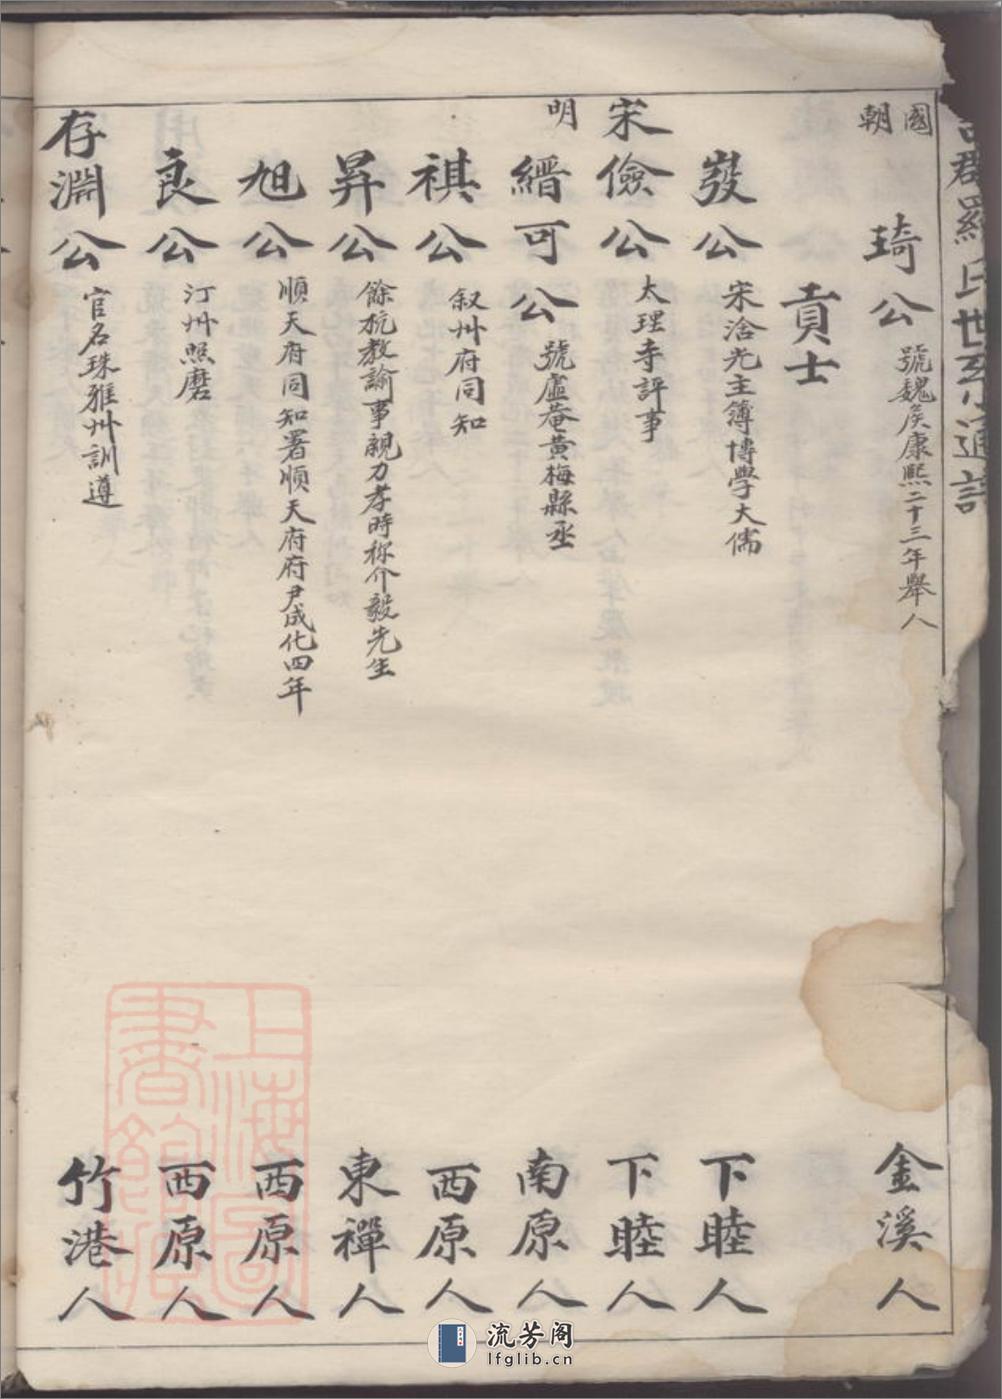 羅氏世系通譜
國朝
琦公 號魏侯康熙二十三年舉人 金溪人
貢士
發公 宋淦光主簿博學大儒 下睦人
宋
儉公 太理寺評事 下睦人
明
縉可公 號廬菴黃梅縣丞 南原人
祺公 叙州府同知 西原人
昇公 餘杭教諭事親力孝時称介毅先生 東禪人
旭公 順天府同知署順天府府尹成化四年 西原人
良公 汀州照磨 西原人
存淵公 官名珠雅州訓遵 竹港人
上海圖書館藏
流芳阁
lfglib.cn